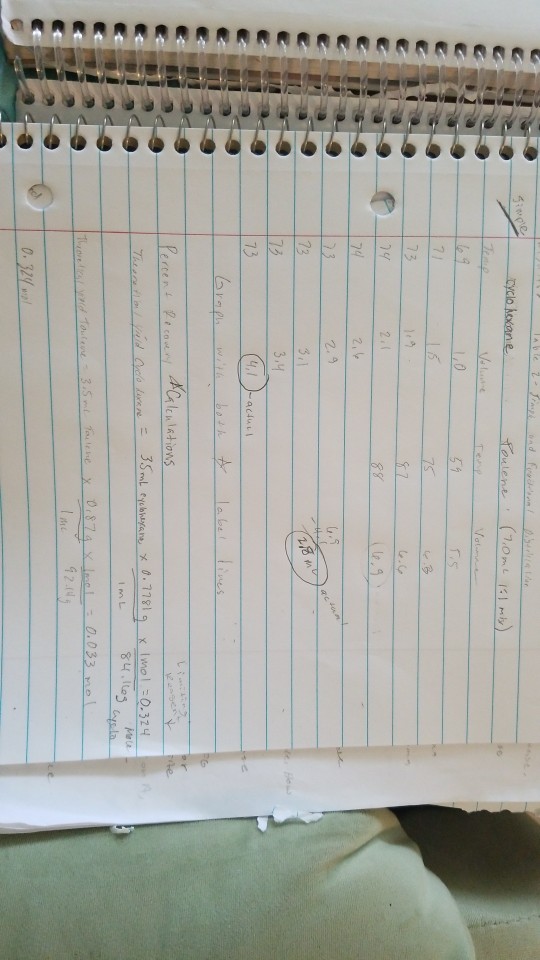 Table 2: Temps and Fractional Distillation
Simple
cyclohexane Toulene (7.0mL 1:1 mix)
Temp Volume Temp Volume
69 1.0 59 5.5
71 1.5 75 6.3
73 1.9 87 6.6
74 2.1 88 (6.9)
74 2.6
73 2.9 6.9
73 3.1 -4.1
2.8 mL actual
73 3.4
73 4.1 - actual
Graph with both & label lines
Percent Recovery Calculations
Theoretical yield Cyclohexane = 35mL cyclohexane x 0.7781g x 1mol = 0.324
1mL 84.16g
Theoretical yield Toulene = 3.5mL Toulene x 0.87g x 1mol = 0.033 mol
1mL 92.14g
0.324 mol